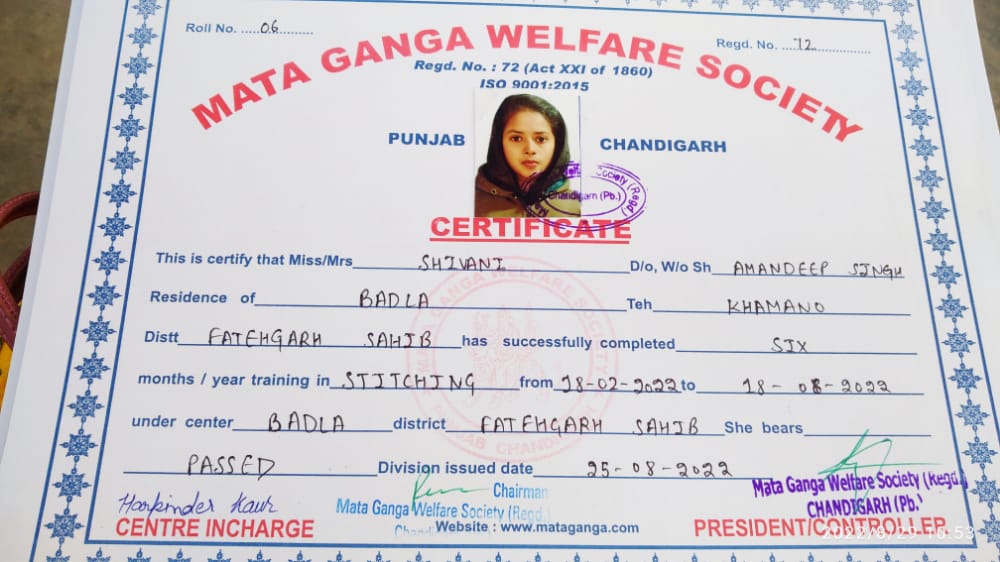 Roll No. .....06..........
Regd. No. ....72................
MATA GANGA WELFARE SOCIETY
Regd. No. : 72 (Act XXI of 1860)
ISO 9001:2015
PUNJAB CHANDIGARH
Society (Regd.)
Chandigarh (Pb.)
CERTIFICATE
This is certify that Miss/Mrs SHIVANI D/o, W/o Sh AMANDEEP SINGH
Residence of BADLA Teh KHAMANO
Distt FATEHGARH SAHIB has successfully completed SIX
months / year training in STITCHING from 18-02-2022 to 18-08-2022
under center BADLA district FATEHGARH SAHIB She bears
PASSED Division issued date 25-08-2022
MATA GANGA WELFARE SOCIETY
PUNJAB CHANDIGARH
Harpinder Kaur
CENTRE INCHARGE
Chairman
Mata Ganga Welfare Society (Regd.)
Website : www.mataganga.com
Mata Ganga Welfare Society (Regd.)
CHANDIGARH (Pb.)
PRESIDENT/CONTROLLER
2022/8/29 10:53